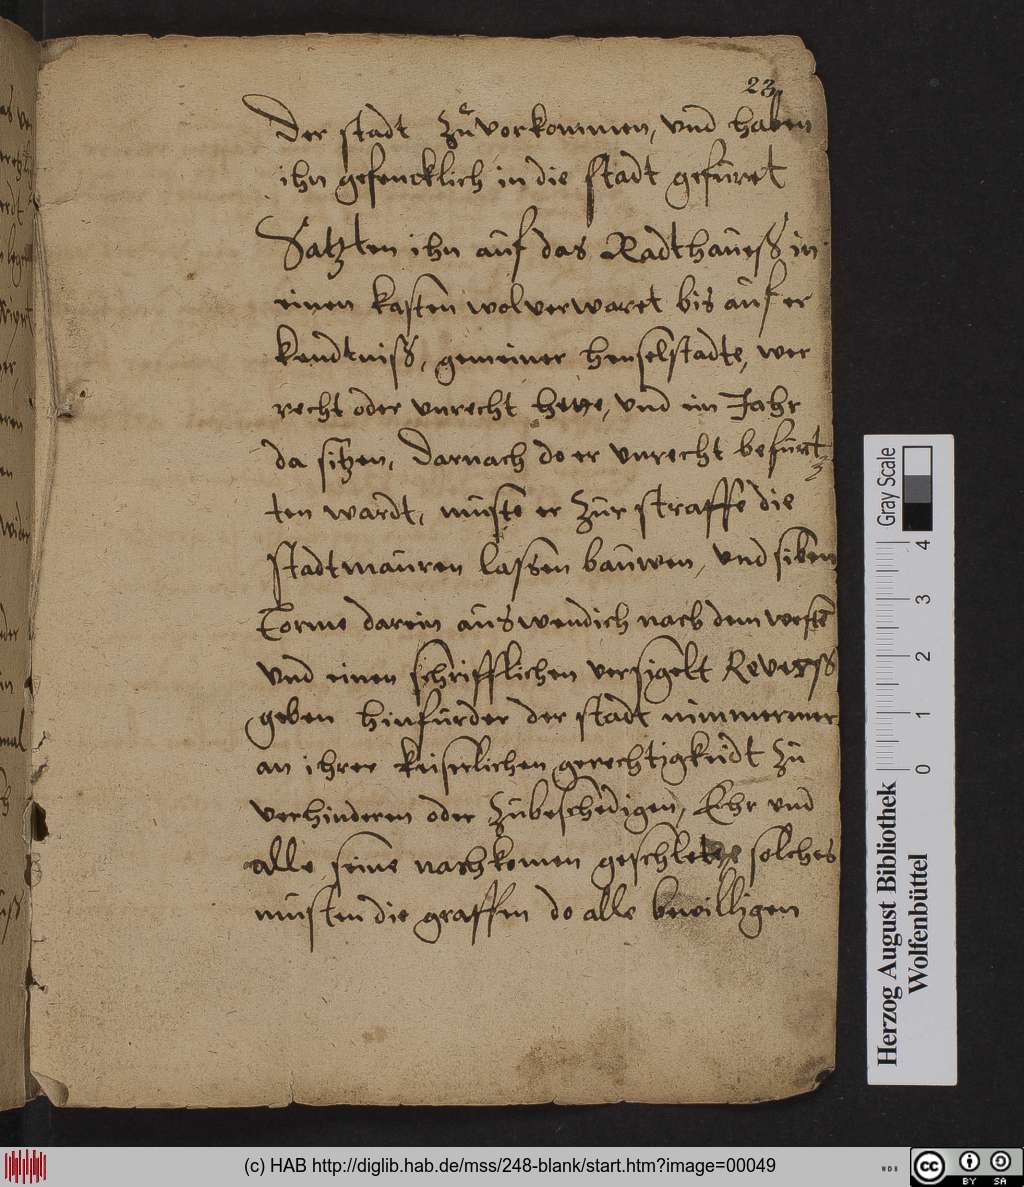 23
der stadt zu vorkommen, vnd haben
ihn gefencklich in die stadt gefüret
Satzten ihn auf das Radthaueß in
einen kasten wol verwaret bis auf er
kendtniß, gemeiner henselstadte, wer
recht oder vnrecht hette, vnd ein Jahr
da sitzen, darnach do er vnrecht befun
ten wardt, müste er zur straffe die
stadtmauren lassen bauwen, vnd siben
Torme darein auswendich nach dem westen
vnd einen schrifftlichen versigelt Reverß
geben hinfürder der stadt nimmermer
an ihrer keiserlichen gerechtigkeidt zu
verhinderen oder zubeschedigen, Ehr vnd
alle seine nachkomen geschlechte solches
müsten die graffen do alle bewilligen
Gray Scale
0 1 2 3 4
Herzog August Bibliothek
Wolfenbüttel
(c) HAB http://diglib.hab.de/mss/248-blank/start.htm?image=00049
WDB
cc BY SA